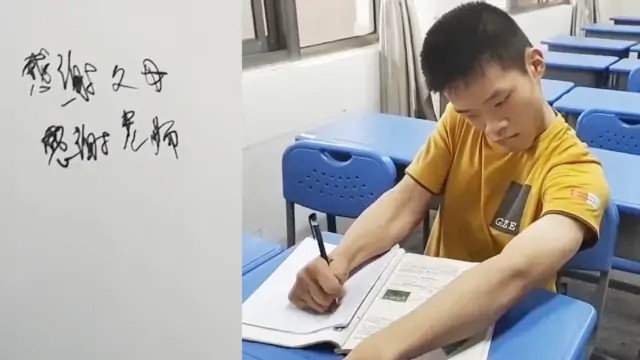 感谢父母
感谢老师
GZE